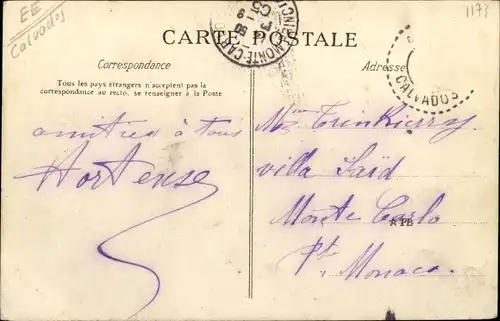 EE
Calvados
1173
CARTE POSTALE
Correspondance
Adresse
Tous les pays étrangers n'acceptent pas la
correspondance au recto, se renseigner à la Poste
CALVADOS
amitiés à tous
Hortense
villa Saïd
Monte Carlo
Pté Monaco